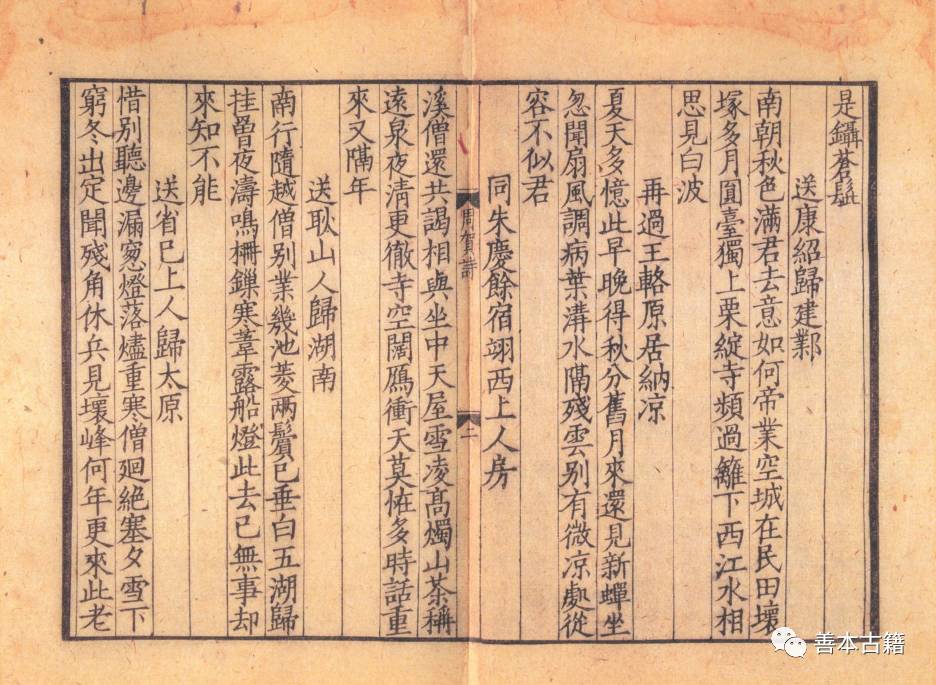 是鑷蒼髭
送康紹歸建鄴
南朝秋色滿君去意如何帝業空城在民田壞
塚多月圓臺獨上栗綻寺頻過籬下西江水相
思見白波
再過王輅原居納凉
夏天多憶此早晚得秋分舊月來還見新蟬坐
忽聞扇風調病葉溝水隔殘雲別有微凉處從
容不似君
同朱慶餘宿翊西上人房
周賀詩
二
溪僧還共謁相與坐中天屋雪凌高燭山茶稱
遠泉夜清更徹寺空闊鴈衝天莫恠多時話重
來又隔年
送耿山人歸湖南
南行隨越僧別業幾池菱兩鬢已垂白五湖歸
挂罾夜濤鳴柵鏁寒葦露船燈此去已無事却
來知不能
送省已上人歸太原
惜別聽邊漏窻燈落燼重寒僧廻絶塞夕雪下
窮冬出定聞殘角休兵見壞峰何年更來此老
善本古籍